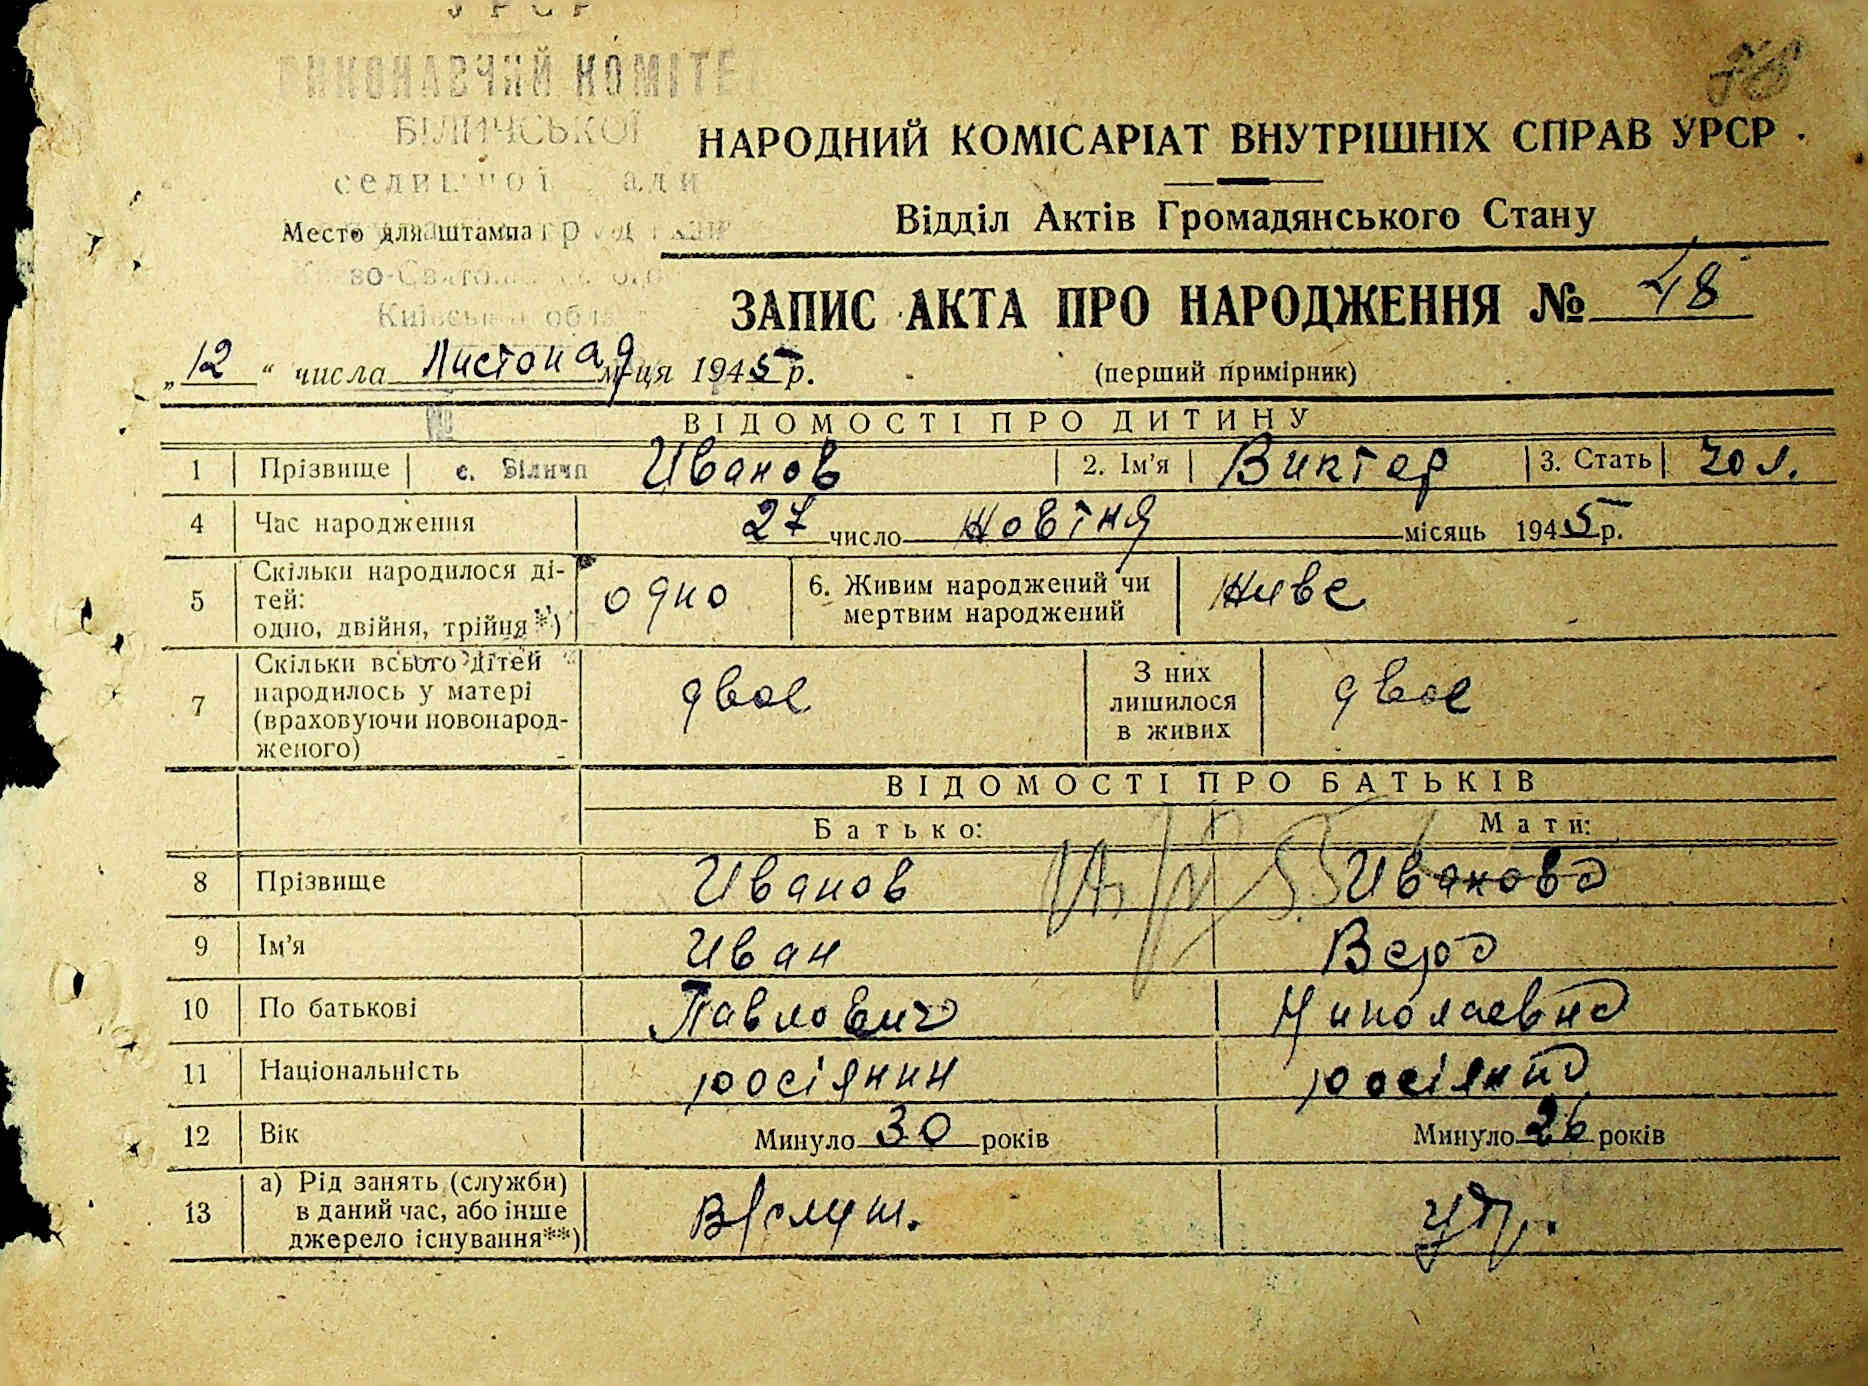 УРСР
ВИКОНАВЧИЙ КОМІТЕТ
БІЛИЧСЬКОЇ
НАРОДНИЙ КОМІСАРІАТ ВНУТРІШНІХ СПРАВ УРСР
Відділ Актів Громадянського Стану
Место для штампа
ЗАПИС АКТА ПРО НАРОДЖЕННЯ № 48
„12“ числа Листопад м-ця 1945 р.
(перший примірник)
ВІДОМОСТІ ПРО ДИТИНУ
1 Прізвище с. Біличі Иванов 2. Ім'я Виктор 3. Стать чол.
4 Час народження 27 число жовтня місяць 1945 р.
5 Скільки народилося ді-
тей:
одно, двійня, трійня*) одно 6. Живим народжений чи
мертвим народжений живе
7 Скільки всього дітей
народилось у матері
(враховуючи новонарод-
женого) двое З них
лишилося
в живих двое
ВІДОМОСТІ ПРО БАТЬКІВ
Батько: Мати:
8 Прізвище Иванов Иванова
9 Ім'я Иван Вера
10 По батькові Павлович Николаевна
11 Національність росіянин росіянка
12 Вік Минуло 30 років Минуло 26 років
13 а) Рід занять (служби)
в даний час, або інше
джерело існування**) В/служ.